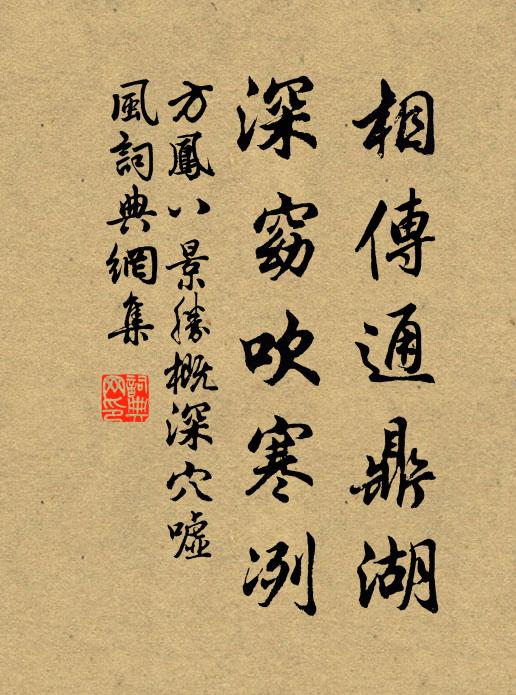 相傳通鼎湖
深窈吹寒冽
方鳳八景勝概深穴噓
風詞典網集
詞典網印